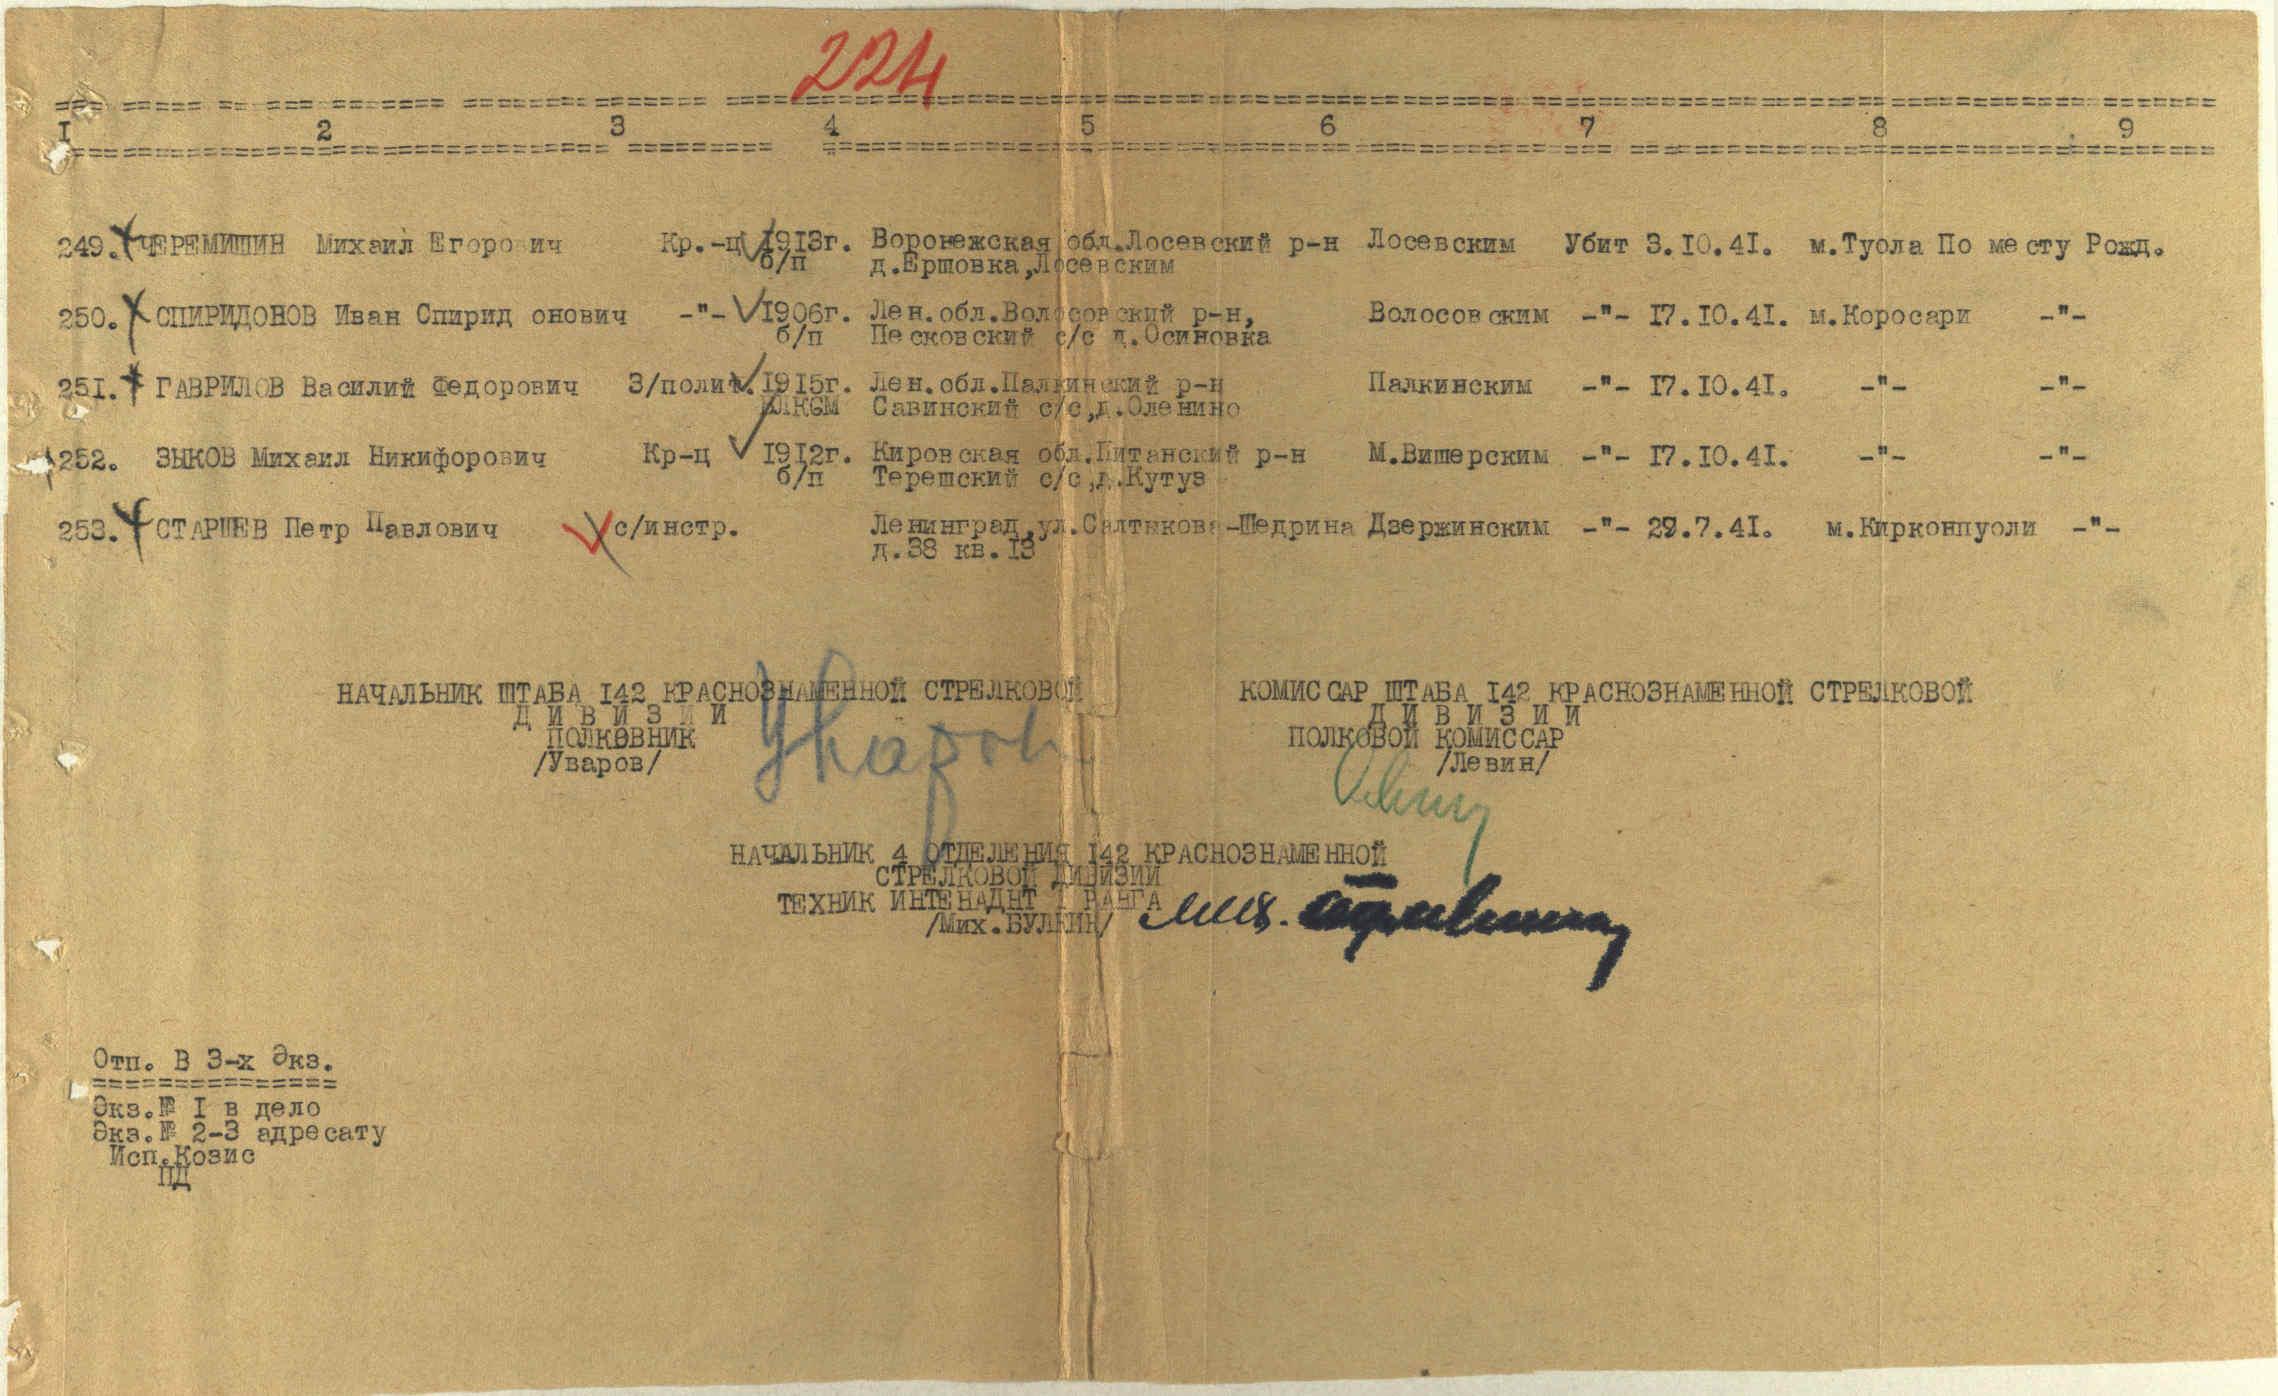 224
I 2 3 4 5 6 7 8 9
249. ЧЕРЕМИШИН Михаил Егорович Кр.-ц 1913г. Воронежская обл.Лосевский р-н Лосевским Убит 3.10.41. м.Туола По месту Рожд.
б/п д.Ершовка,Лосевским
250. СПИРИДОНОВ Иван Спирид онович -"- 1906г. Лен.обл.Волосовский р-н, Волосовским -"- 17.10.41. м.Коросари -"-
б/п Песковский с/с д.Осиновка
251. ГАВРИЛОВ Василий Федорович З/полит. 1915г. Лен.обл.Палкинский р-н Палкинским -"- 17.10.41. -"- -"-
ВЛКСМ Савинский с/с,д.Оленино
252. ЗЫКОВ Михаил Никифорович Кр-ц 1912г. Кировская обл.Битанский р-н М.Вишерским -"- 17.10.41. -"- -"-
б/п Терешский с/с,д.Кутуз
253. СТАРШЕВ Петр Павлович с/инстр. Ленинград,ул.Салтыкова-Щедрина Дзержинским -"- 29.7.41. м.Кирконпуоли -"-
д.38 кв.13
НАЧАЛЬНИК ШТАБА 142 КРАСНОЗНАМЕННОЙ СТРЕЛКОВОЙ КОМИССАР ШТАБА 142 КРАСНОЗНАМЕННОЙ СТРЕЛКОВОЙ
Д И В И З И И Д И В И З И И
ПОЛКОВНИК ПОЛКОВОЙ КОМИССАР
/Уваров/ Уваров /Левин/
Левин
НАЧАЛЬНИК 4 ОТДЕЛЕНИЯ 142 КРАСНОЗНАМЕННОЙ
СТРЕЛКОВОЙ ДИВИЗИИ
ТЕХНИК ИНТЕНАДНТ I РАНГА
/Мих.БУЛКИН/ Мих.
Отп. В 3-х Экз.
Экз.№ I в дело
Экз.№ 2-3 адресату
Исп.Козис
ПД